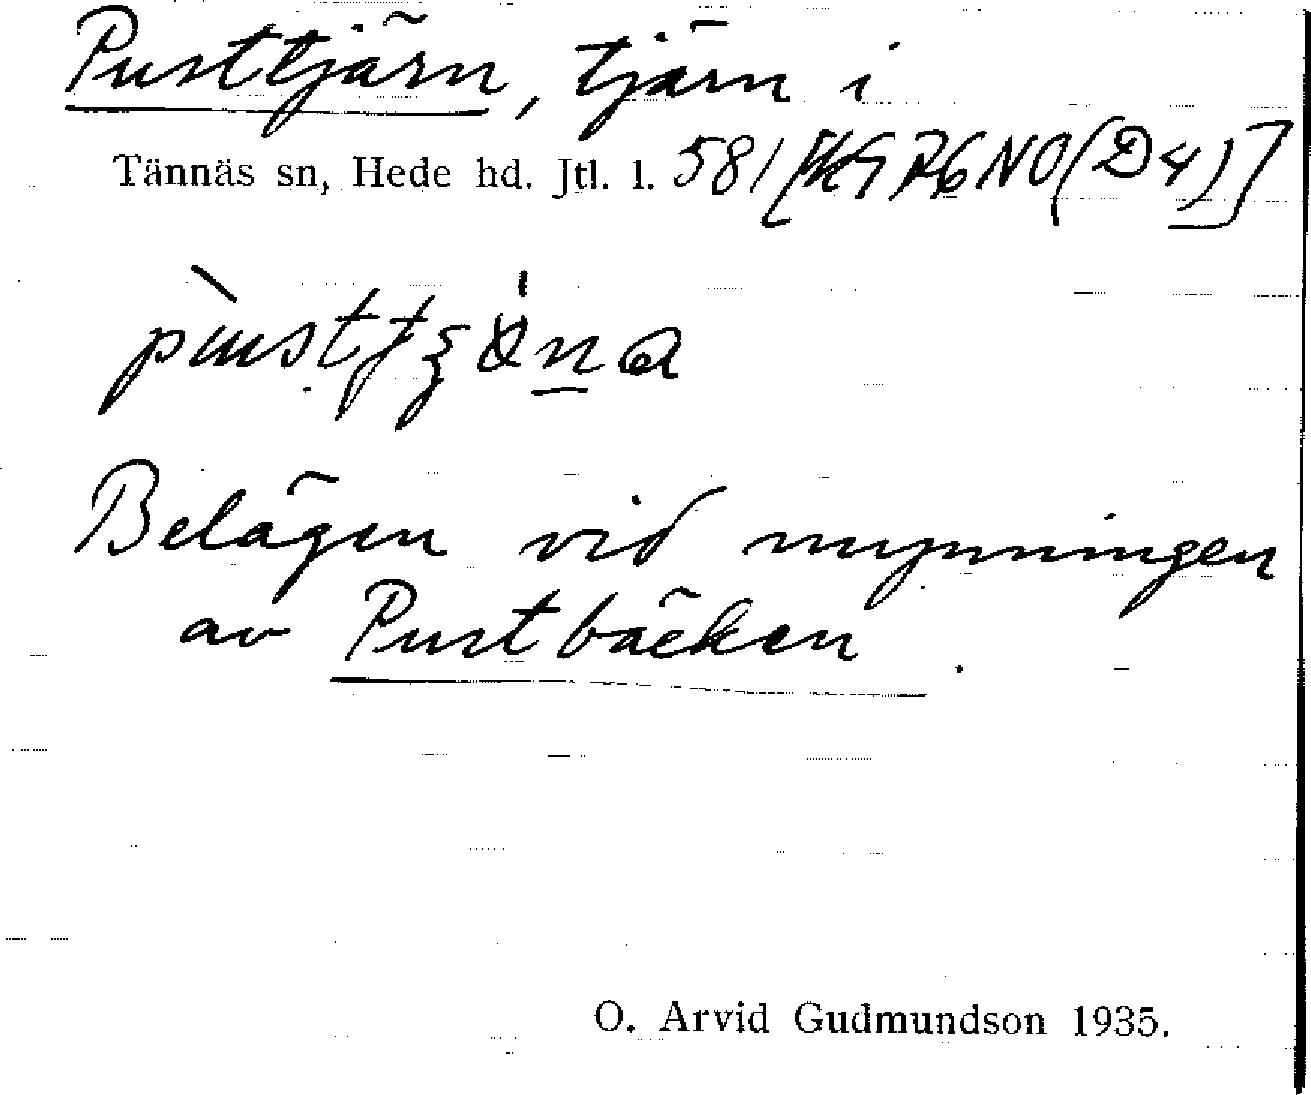 Pusttjärn, tjärn i
Tännäs sn, Hede hd. Jtl. l. 581 NO (D4)]
Belägen vid mynningen
av Pustbäcken.
O. Arvid Gudmundson 1935.